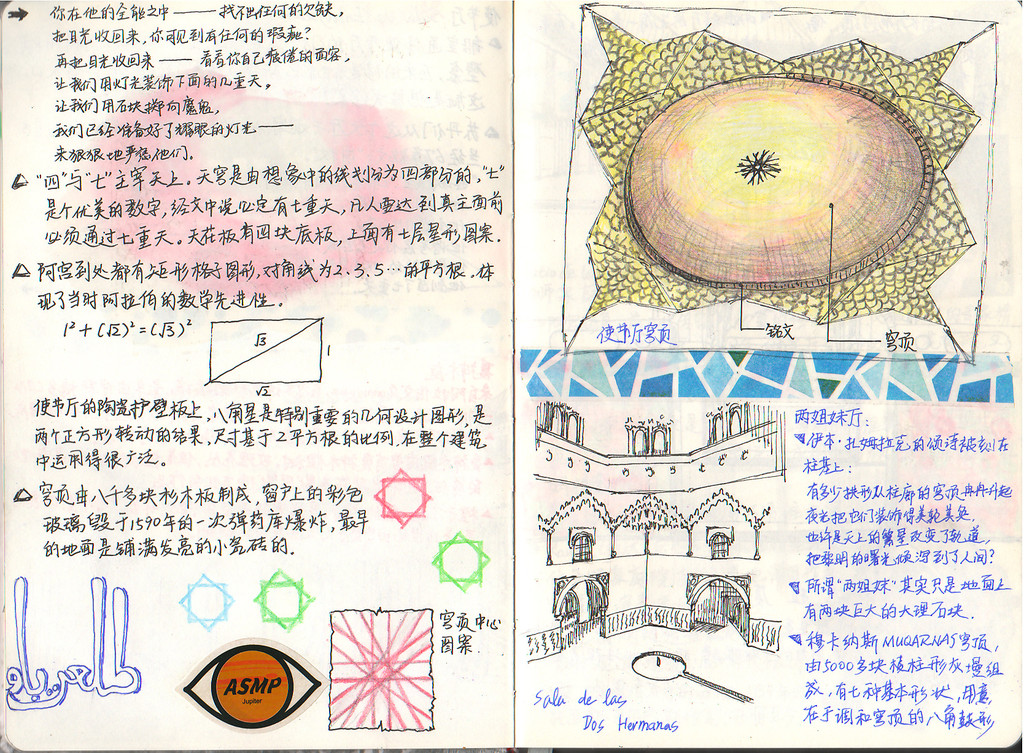 你在他的全能之中——找不出任何的欠缺，
把目光收回来，你可见到有任何的瑕疵？
再把目光收回来——看看你自己疲倦的面容，
让我们用灯光装饰下面的几重天。
让我们用石块掷向魔鬼，
我们已经准备好了耀眼的灯光——
来狠狠地严惩他们。
"四"与"七"主宰天上。天宫是由想象中的线划分为四部分的，"七"
是个优美的数字，经文中说必定有七重天，凡人要达到真主面前
必须通过七重天。天花板有四块底板，上面有七层星形图案.
阿宫到处都有矩形格子图形，对角线为2、3、5…的平方根。体
现了当时阿拉伯的数学先进性。
1²+(√2)²=(√3)²
√3
1
√2
使节厅的陶瓷护壁板上，八角星是特别重要的几何设计图形，是
两个正方形转动的结果，尺寸基于2平方根的比例，在整个建筑
中运用得很广泛。
穹顶由八千多块杉木板制成，窗户上的彩色
玻璃毁于1590年的一次弹药库爆炸，最早
的地面是铺满发亮的小瓷砖的.
穹顶中心
图案.
ASMP
Jupiter
使节厅穹顶
铭文
穹顶
两姐妹厅：
伊本·扎姆拉克的颂诗被刻在
柱基上：
有多少拱形从柱廊的穹顶冉冉升起
夜光把它们装饰得美轮美奂
也许是天上的繁星改变了轨道，
把黎明的曙光倾泻到了人间？
所谓"两姐妹"其实只是地面上
有两块巨大的大理石块.
穆卡纳斯MUQARNAS穹顶，
由5000多块棱柱形灰墁组
成，有七种基本形状，用意
在于调和穹顶的八角鼓形
Sala de las
Dos Hermanas